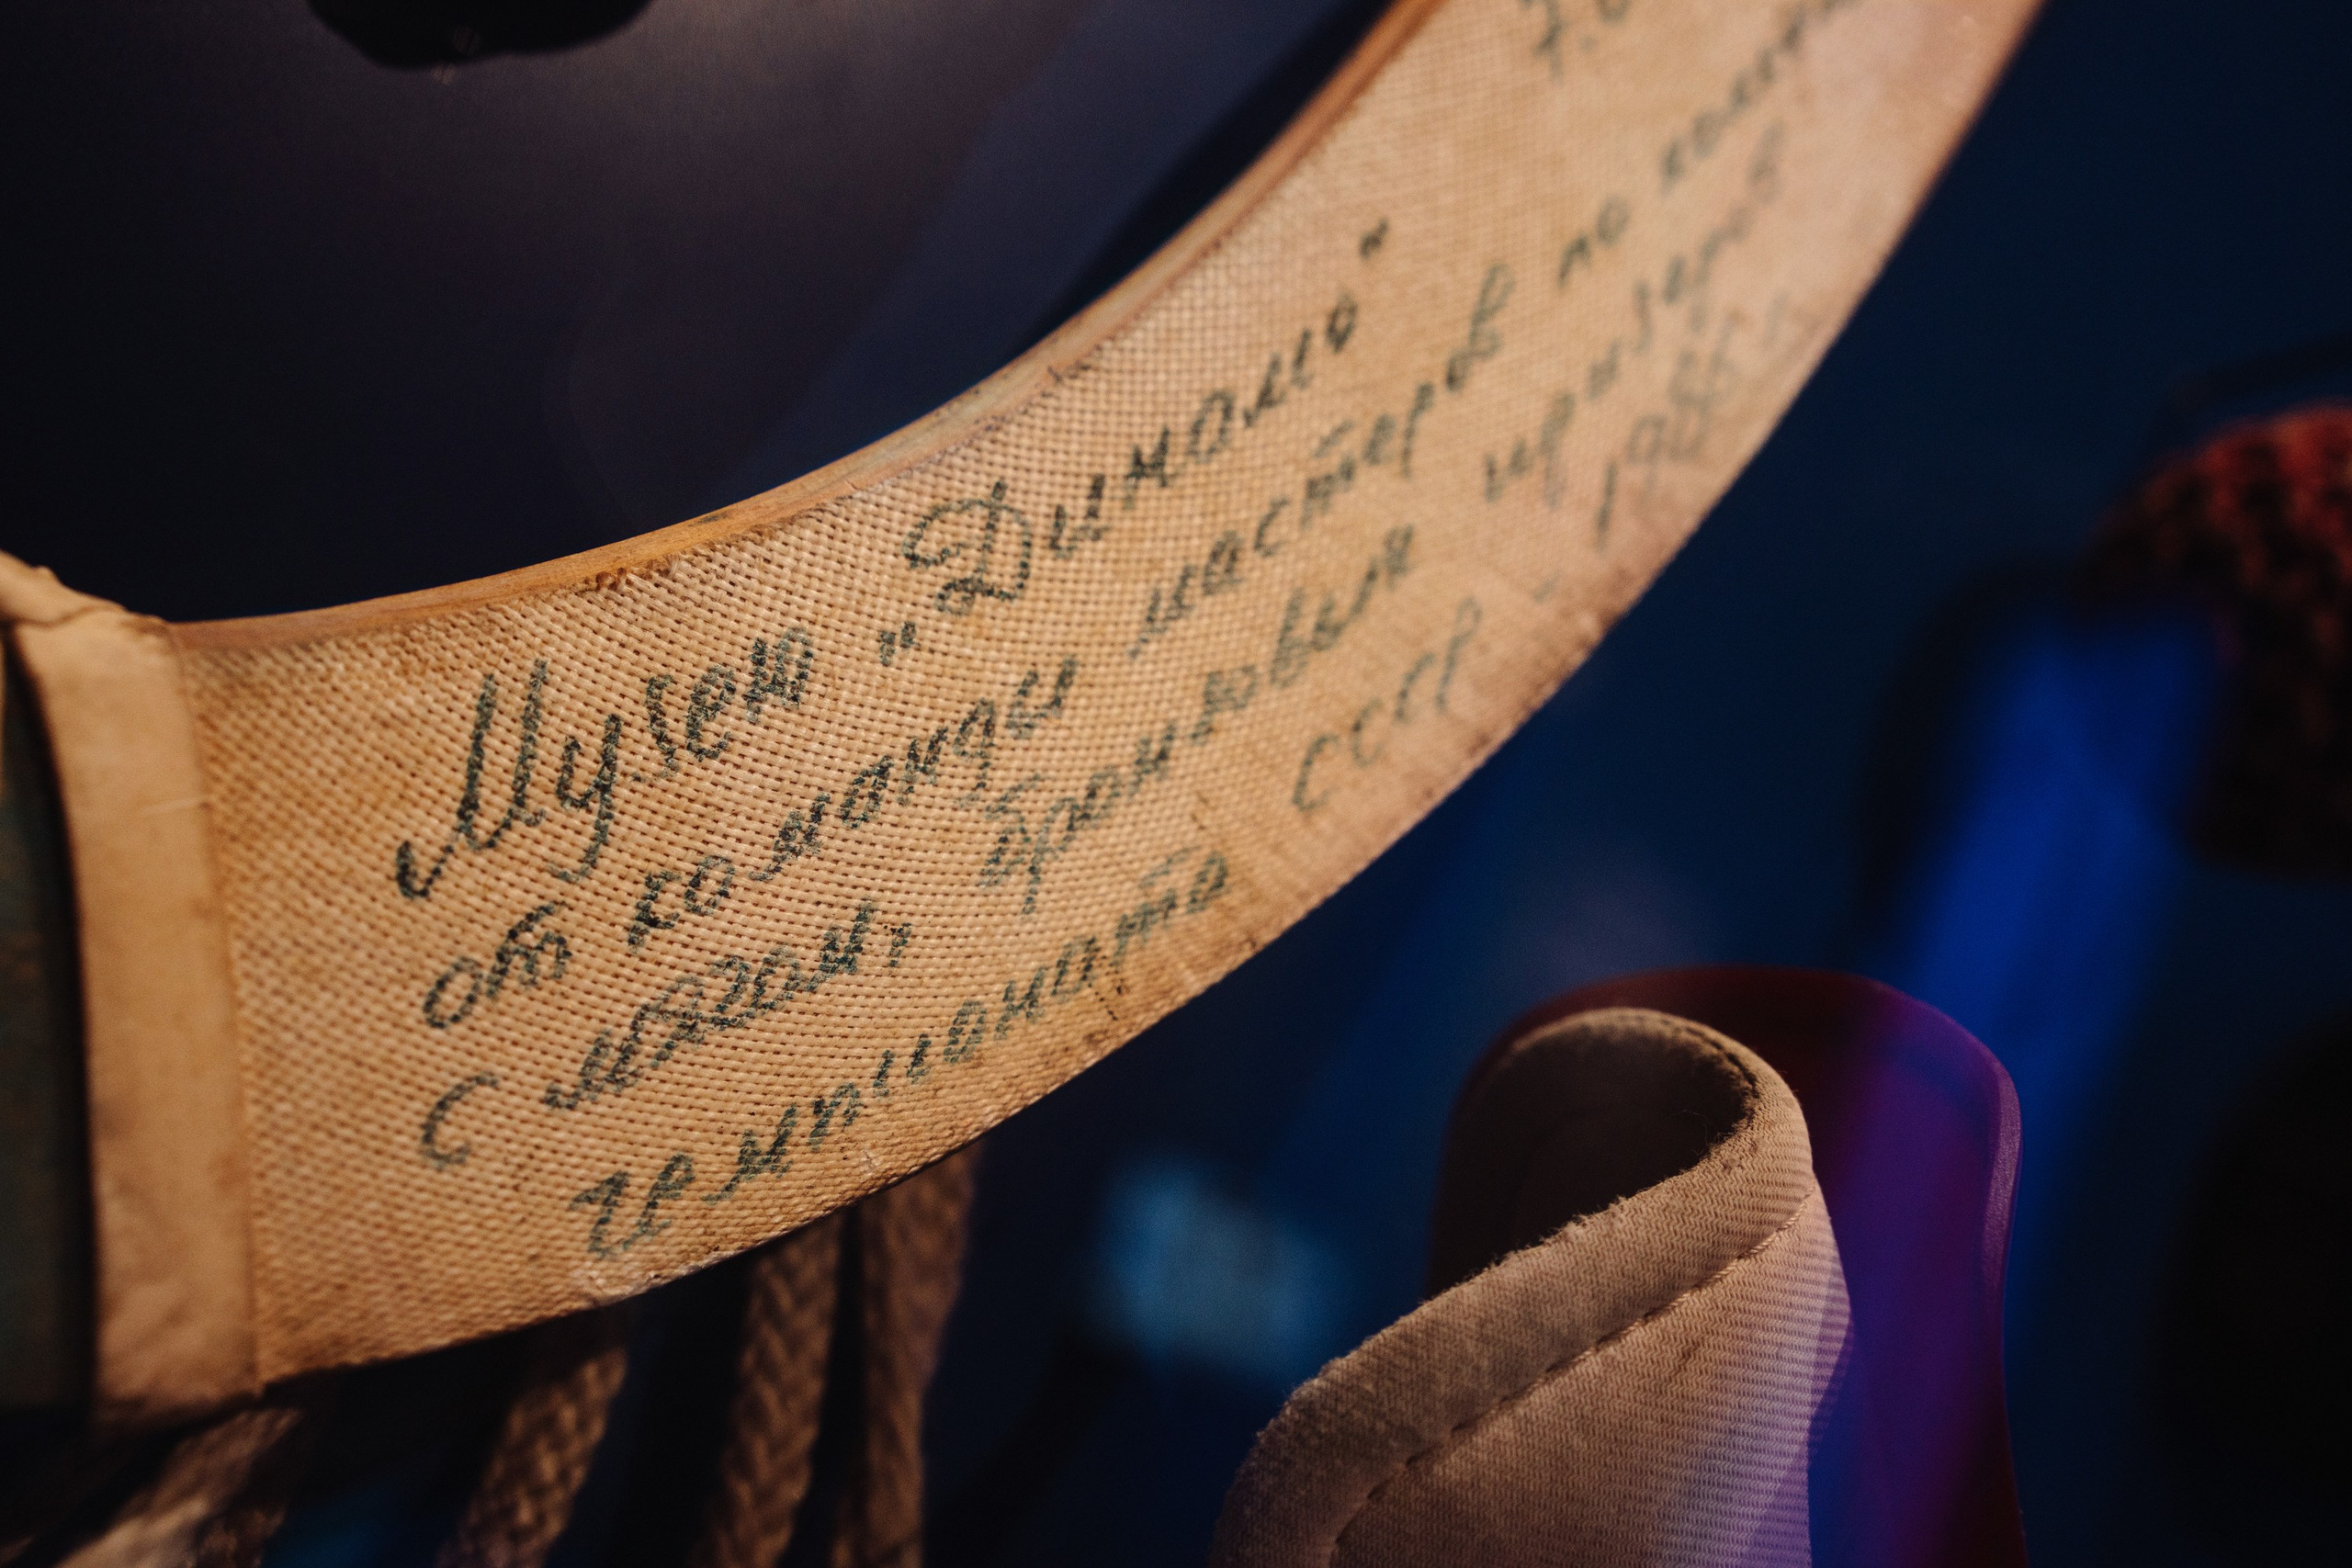 Музею „Динамо"
от команды мастеров по хоккею
с мячом, бронзовых призеров
чемпионата СССР 1986 г.